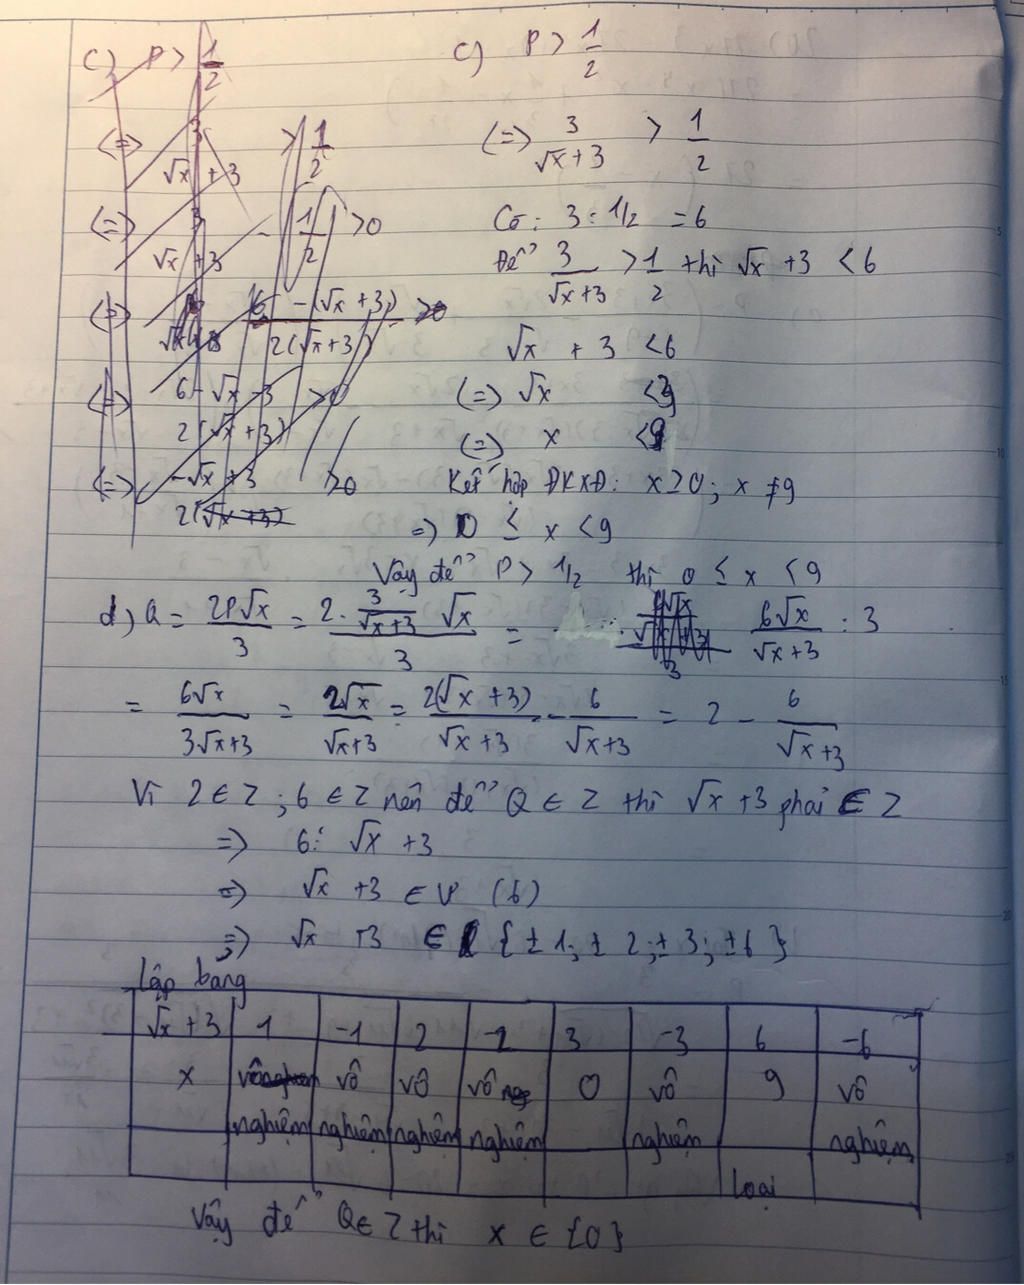 c) P > 1/2
(=) 3/(√x + 3) > 1/2
(=) 3/(√x + 3) - 1/2 > 0
(=) 6 - (√x + 3) / 2(√x + 3) > 0
(=) 6 - √x - 3 / 2(√x + 3) > 0
(=) -√x + 3 / 2(√x + 3) > 0
c) P > 1/2
(=) 3/(√x + 3) > 1/2
Có: 3 : 1/2 = 6
Để 3/(√x + 3) > 1/2 thì √x + 3 < 6
√x + 3 < 6
(=) √x < 3
(=) x < 9
Kết hợp ĐKXĐ: x ≥ 0; x ≠ 9
=) 0 ≤ x < 9
Vậy để P > 1/2 thì 0 ≤ x < 9
d) Q = 2P√x / 3 = 2 . 3/(√x + 3) √x / 3 = 6√x/(√x + 3) : 3
= 6√x / 3√x + 3 = 2√x / √x + 3 = 2(√x + 3) / √x + 3 - 6 / √x + 3 = 2 - 6 / √x + 3
Vì 2 ∈ Z ; 6 ∈ Z nên để Q ∈ Z thì √x + 3 phải ∈ Z
=) 6 ⋮ √x + 3
=) √x + 3 ∈ Ư (6)
=) √x + 3 ∈ { ± 1; ± 2 ; ± 3 ; ± 6 }
Lập bảng
√x + 3 1 -1 2 -2 3 -3 6 -6
x vô nghiệm vô nghiệm vô nghiệm vô nghiệm 0 vô nghiệm 9 vô nghiệm
loại
Vậy để Q ∈ Z thì x ∈ {0}